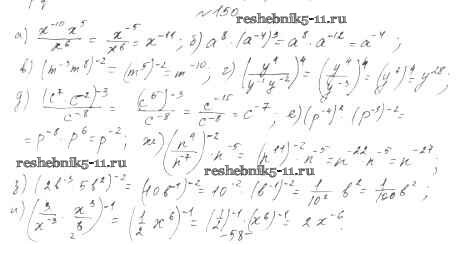 №150
reshebnik5-11.ru
а) x⁻¹⁰x⁵/x⁶ = x⁻⁵/x⁶ = x⁻¹¹; б) a⁸·(a⁻⁴)³ = a⁸·a⁻¹² = a⁻⁴;
в) (m⁻³m⁸)⁻² = (m⁵)⁻² = m⁻¹⁰, г) (y⁴/(y⁻¹y⁻²))⁴ = (y⁴/y⁻³)⁴ = (y⁷)⁴ = y²⁸;
д) (c⁷c⁻²)⁻³/c⁻⁸ = (c⁵)⁻³/c⁻⁸ = c⁻¹⁵/c⁻⁸ = c⁻⁷; е) (p⁻⁴)²·(p⁻³)⁻² =
= p⁻⁸·p⁶ = p⁻²; ж) (n⁴/n⁻⁷)⁻²·n⁻⁵ = (n¹¹)⁻²·n⁻⁵ = n⁻²²n⁻⁵ = n⁻²⁷;
reshebnik5-11.ru reshebnik5-11.ru
з) (2b⁻³5b²)⁻² = (10b⁻¹)⁻² = 10⁻²·(b⁻¹)⁻² = 1/10² b² = 1/100 b²;
и) = (1/2 x⁶)⁻¹ = (1/2)⁻¹·(x⁶)⁻¹ = 2x⁻⁶.
-58-